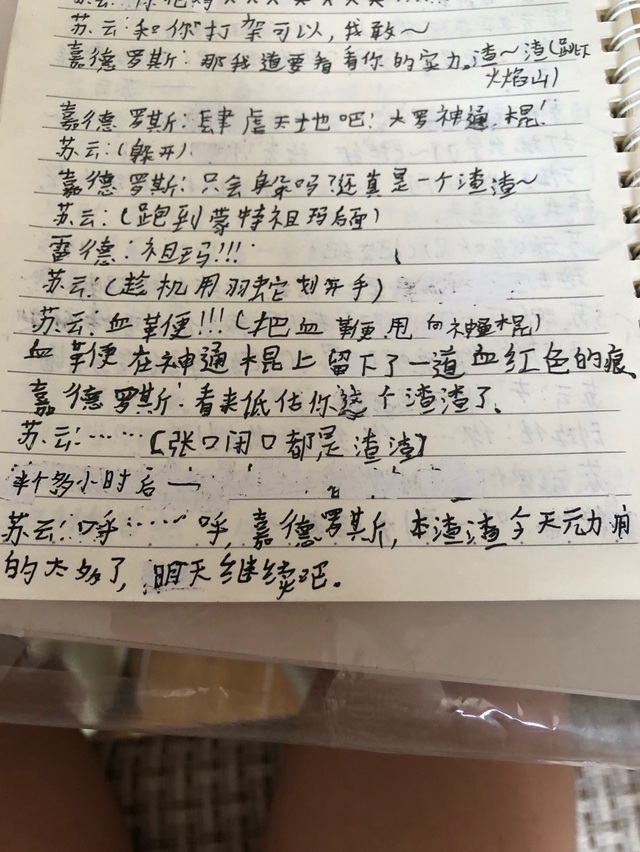 苏云：和你打架可以，我敢～
嘉德罗斯：那我道要看看你的实力。渣～渣（跳下
火焰山）
嘉德罗斯：肆虐天地吧！大罗神通棍！
苏云：（躲开）
嘉德罗斯：只会躲吗？还真是一个渣渣～
苏云：（跑到蒙特祖玛后面）
雷德：祖玛！！！
苏云：（趁机用羽蛇划开手）
苏云：血鞭！！！（把血鞭甩向神通棍）
血鞭在神通棍上留下了一道血红色的痕
嘉德罗斯：看来低估你这个渣渣了。
苏云：……【张口闭口都是渣渣】
半个多小时后—
苏云：呼……呼，嘉德罗斯，本渣渣今天元力用
的太多了，明天继续吧。